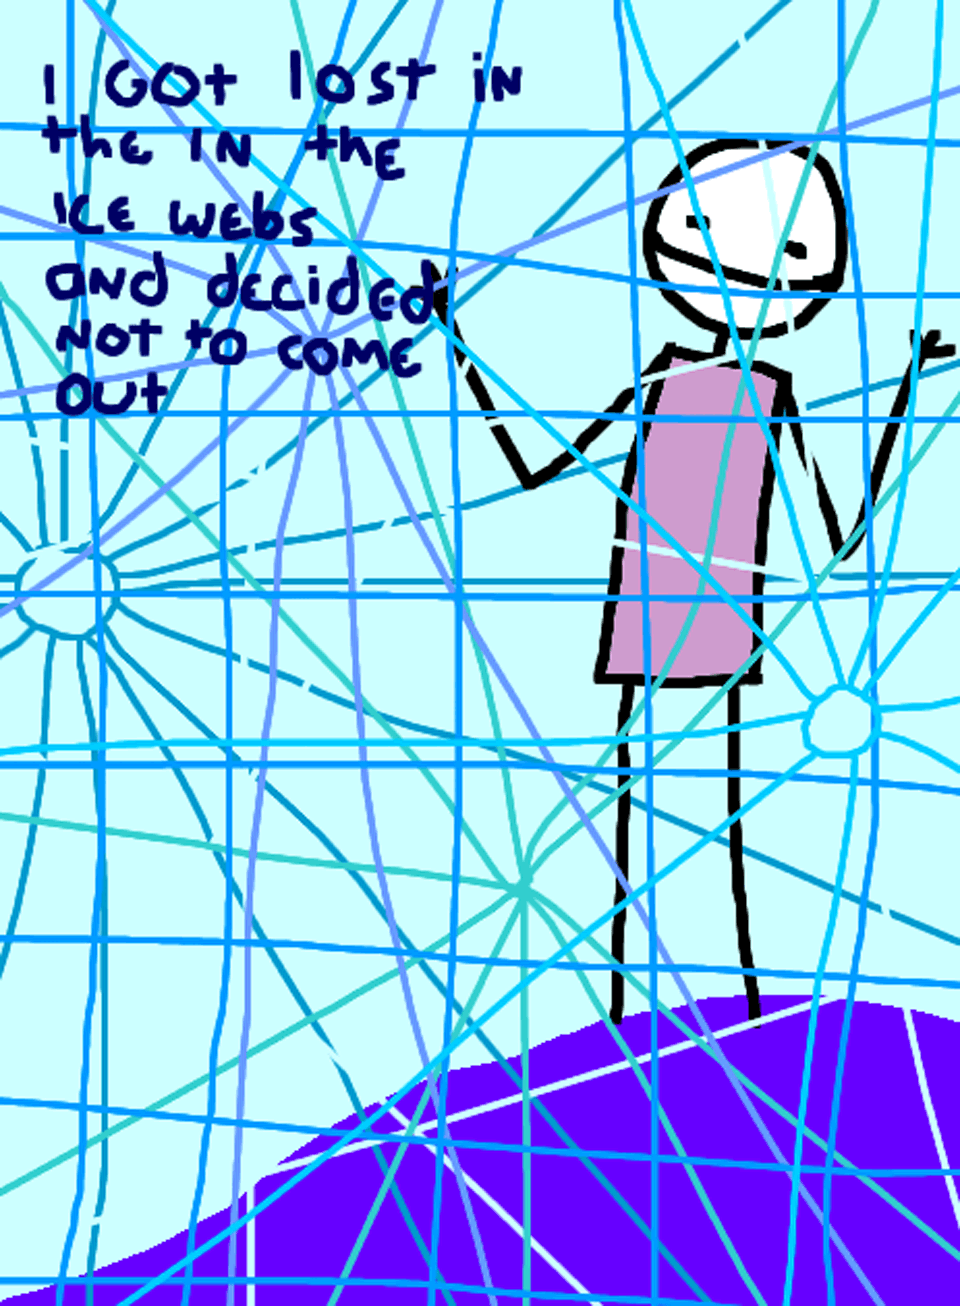 I GOt lost in
the IN the
ICE webs
and decided
NOT to COME
OUt